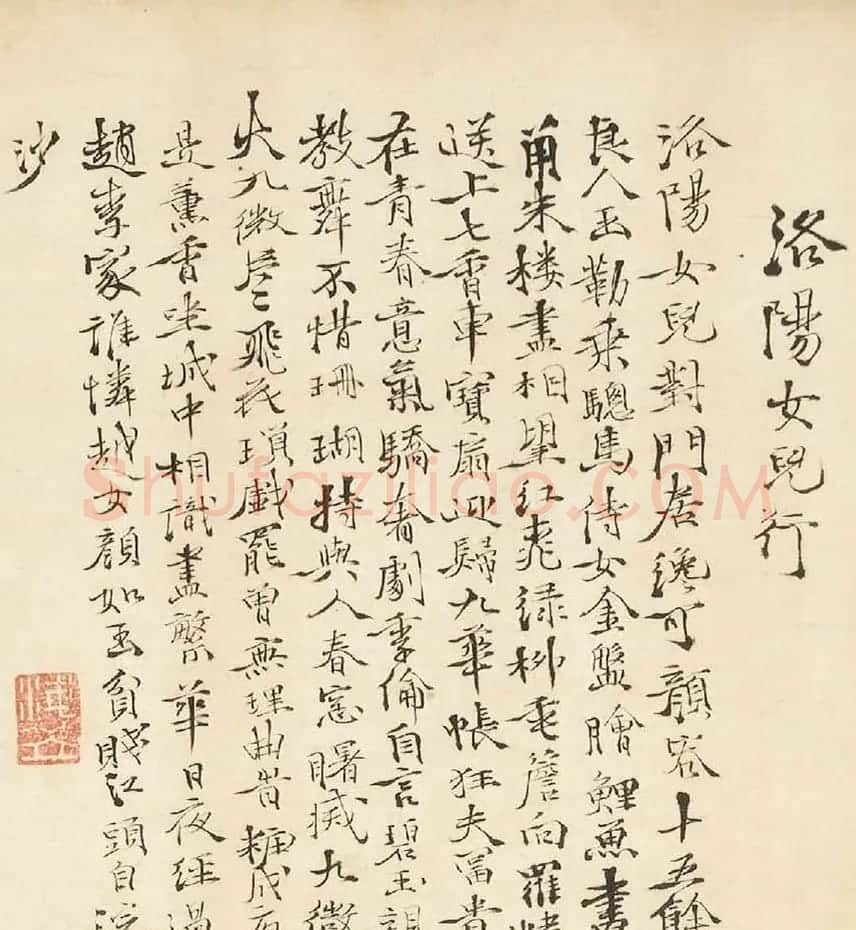 洛陽女兒行
洛陽女兒對門居纔可顏容十五餘
良人玉勒乘驄馬侍女金盤膾鯉魚畫
朱樓盡相望紅桃綠柳垂簷向羅
送上七香車寶扇迎歸九華帳狂夫富貴
在青春意氣驕奢劇季倫自言碧玉親
教舞不惜珊瑚持與人春窓曙滅九微
火九微片〻飛花瑣戲罷曾無理曲旹糚成
是薰香坐城中相識盡繁華日夜經過
趙李家誰憐越女顏如玉貧賤江頭自浣
沙
Shufaziliao.com